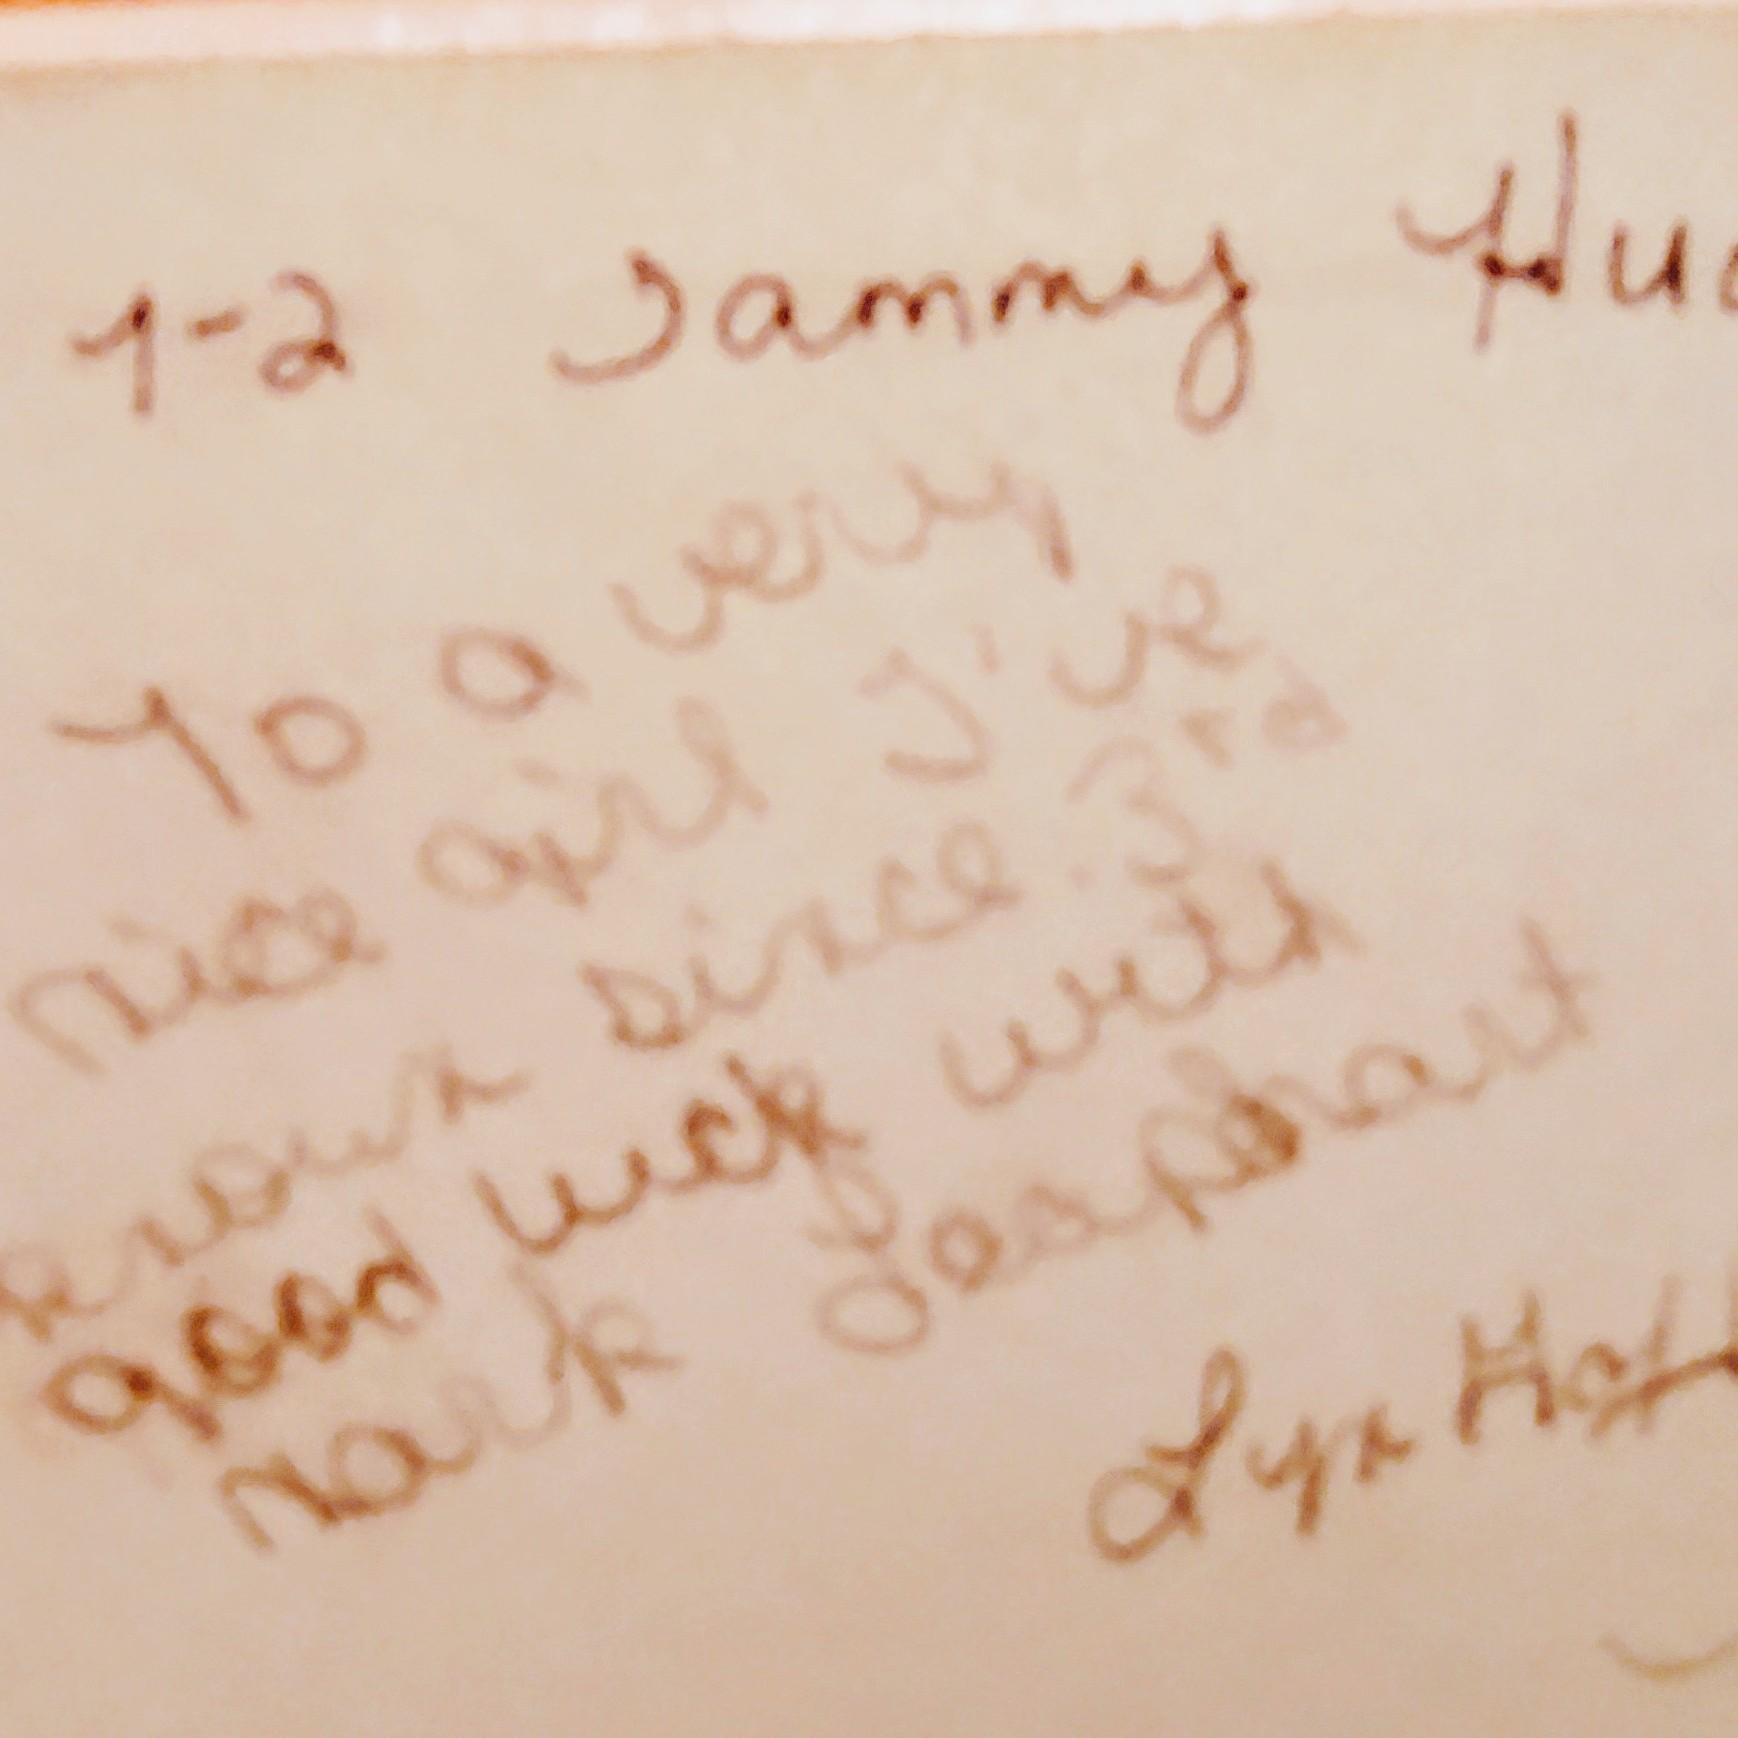 1-2 Sammy
To a very
nice girl I've
known since 3rd
good luck with
Mark
Lyn